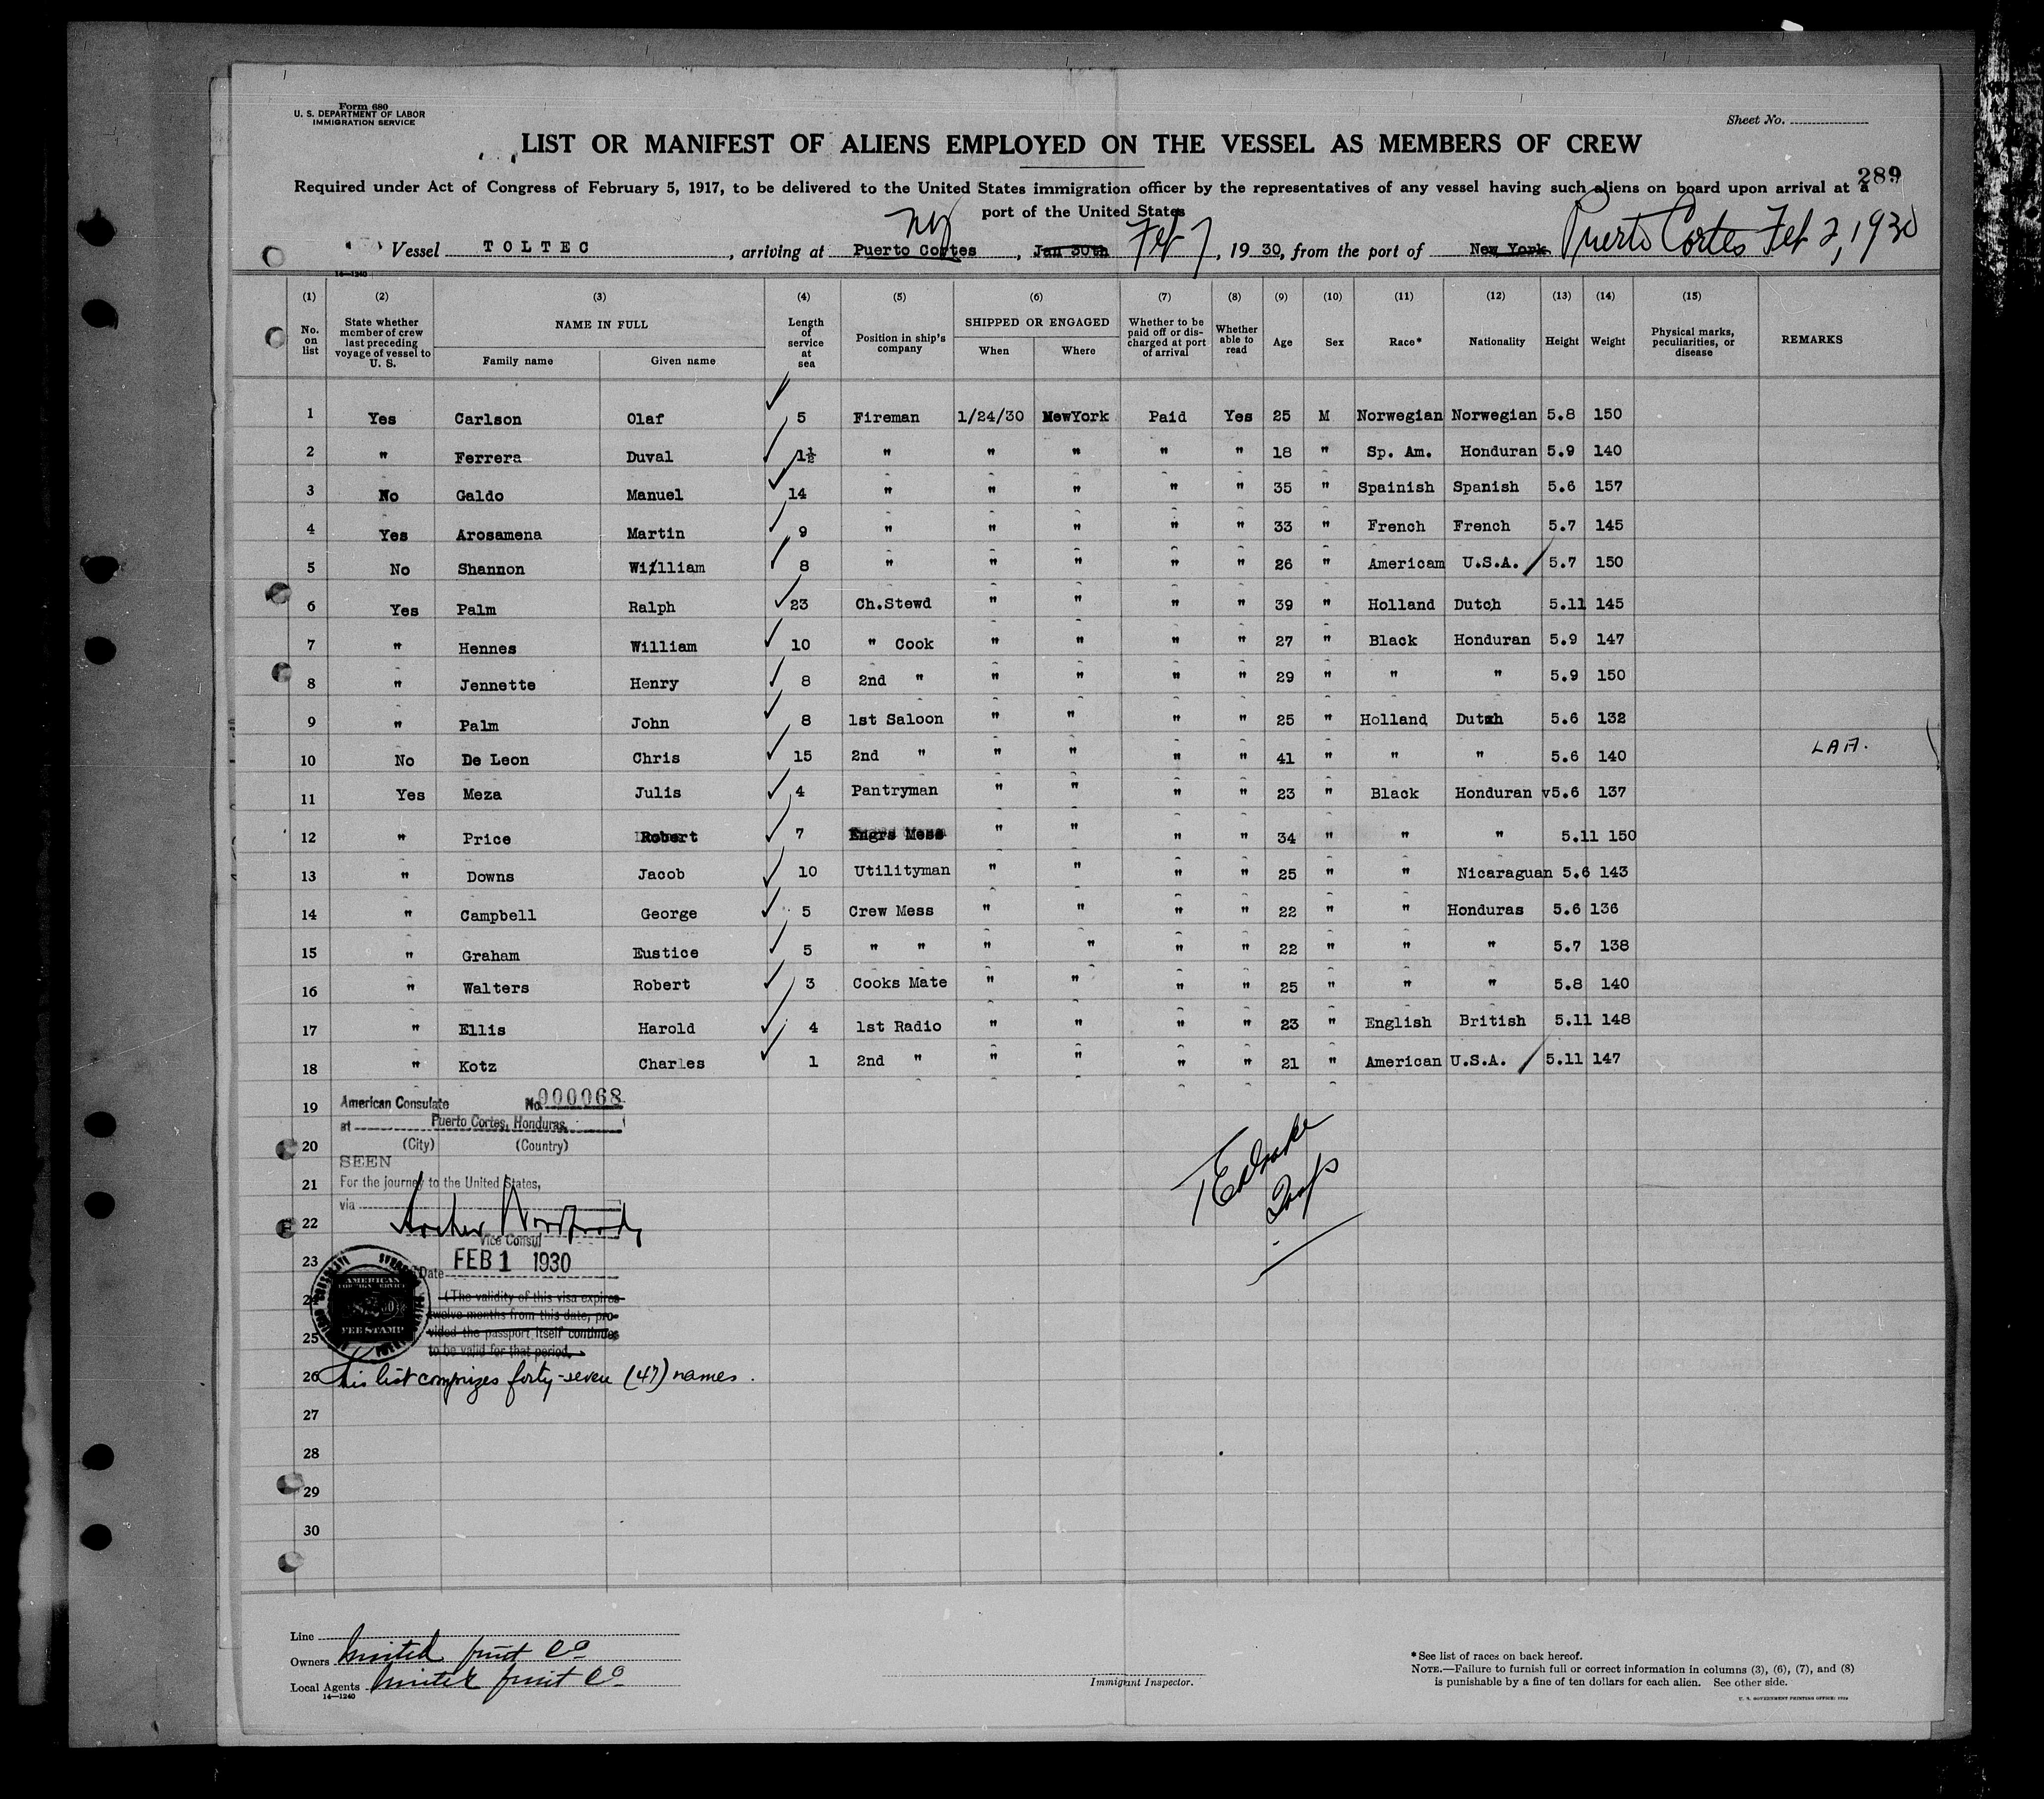 Form 680
U. S. DEPARTMENT OF LABOR
IMMIGRATION SERVICE
Sheet No.
LIST OR MANIFEST OF ALIENS EMPLOYED ON THE VESSEL AS MEMBERS OF CREW
289
Required under Act of Congress of February 5, 1917, to be delivered to the United States immigration officer by the representatives of any vessel having such aliens on board upon arrival at a
port of the United States
NY Feb 7 Puerto Cortes Feb 2, 1930
Vessel TOLTEC, arriving at Puerto Cortes, Jan 30th, 1930, from the port of New York
14—1240
(1) (2) (3) (4) (5) (6) (7) (8) (9) (10) (11) (12) (13) (14) (15)
No. on list State whether member of crew last preceding voyage of vessel to U. S. NAME IN FULL Family name Given name Length of service at sea Position in ship's company SHIPPED OR ENGAGED When Where Whether to be paid off or discharged at port of arrival Whether able to read Age Sex Race* Nationality Height Weight Physical marks, peculiarities, or disease REMARKS
1 Yes Carlson Olaf 5 Fireman 1/24/30 NewYork Paid Yes 25 M Norwegian Norwegian 5.8 150
2 " Ferrera Duval 1½ " " " " " 18 " Sp. Am. Honduran 5.9 140
3 No Galdo Manuel 14 " " " " " 35 " Spainish Spanish 5.6 157
4 Yes Arosamena Martin 9 " " " " " 33 " French French 5.7 145
5 No Shannon Willliam 8 " " " " " 26 " Americam U.S.A. 5.7 150
6 Yes Palm Ralph 23 Ch.Stewd " " " " 39 " Holland Dutch 5.11 145
7 " Hennes William 10 " Cook " " " " 27 " Black Honduran 5.9 147
8 " Jennette Henry 8 2nd " " " " " 29 " " " 5.9 150
9 " Palm John 8 1st Saloon " " " " 25 " Holland Dutch 5.6 132
10 No De Leon Chris 15 2nd " " " " " 41 " " " 5.6 140 LAA.
11 Yes Meza Julis 4 Pantryman " " " " 23 " Black Honduran v5.6 137
12 " Price Robert 7 Engrs Mess " " " " 34 " " " 5.11 150
13 " Downs Jacob 10 Utilityman " " " " 25 " " Nicaraguan 5.6 143
14 " Campbell George 5 Crew Mess " " " " 22 " " Honduras 5.6 136
15 " Graham Eustice 5 " " " " " " 22 " " " 5.7 138
16 " Walters Robert 3 Cooks Mate " " " " 25 " " " 5.8 140
17 " Ellis Harold 4 1st Radio " " " " 23 " English British 5.11 148
18 " Kotz Charles 1 2nd " " " " " 21 " American U.S.A. 5.11 147
19
American Consulate No. 000068
at Puerto Cortes, Honduras,
20
(City) (Country)
SEEN
21
For the journey to the United States,
via
22
Vice Consul
23
Date FEB 1 1930
AMERICAN
FEE STAMP
24
(The validity of this visa expires
twelve months from this date, pro-
25
vided the passport itself continues
to be valid for that period.
26
This list comprizes forty-seven (47) names.
27
28
29
30
Line
Owners United Fruit Co
Local Agents United Fruit Co
14—1240
Immigrant Inspector.
*See list of races on back hereof.
NOTE.—Failure to furnish full or correct information in columns (3), (6), (7), and (8)
is punishable by a fine of ten dollars for each alien. See other side.
U. S. GOVERNMENT PRINTING OFFICE: